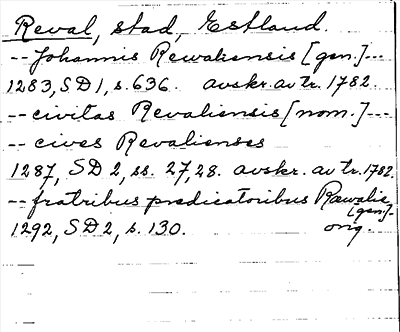 Reval, stad, Estland.
-- Johannis Rewaliensis [gen.] ---
1283, SD 1, s. 636. avskr. av tr. 1782.
-- civitas Revaliensis [nom.] ---
-- cives Revalienses
1287, SD 2, ss. 27, 28. avskr. av tr. 1782.
-- fratribus predicatoribus Rewalie
[gen.]-
1292, SD 2, s. 130. orig.